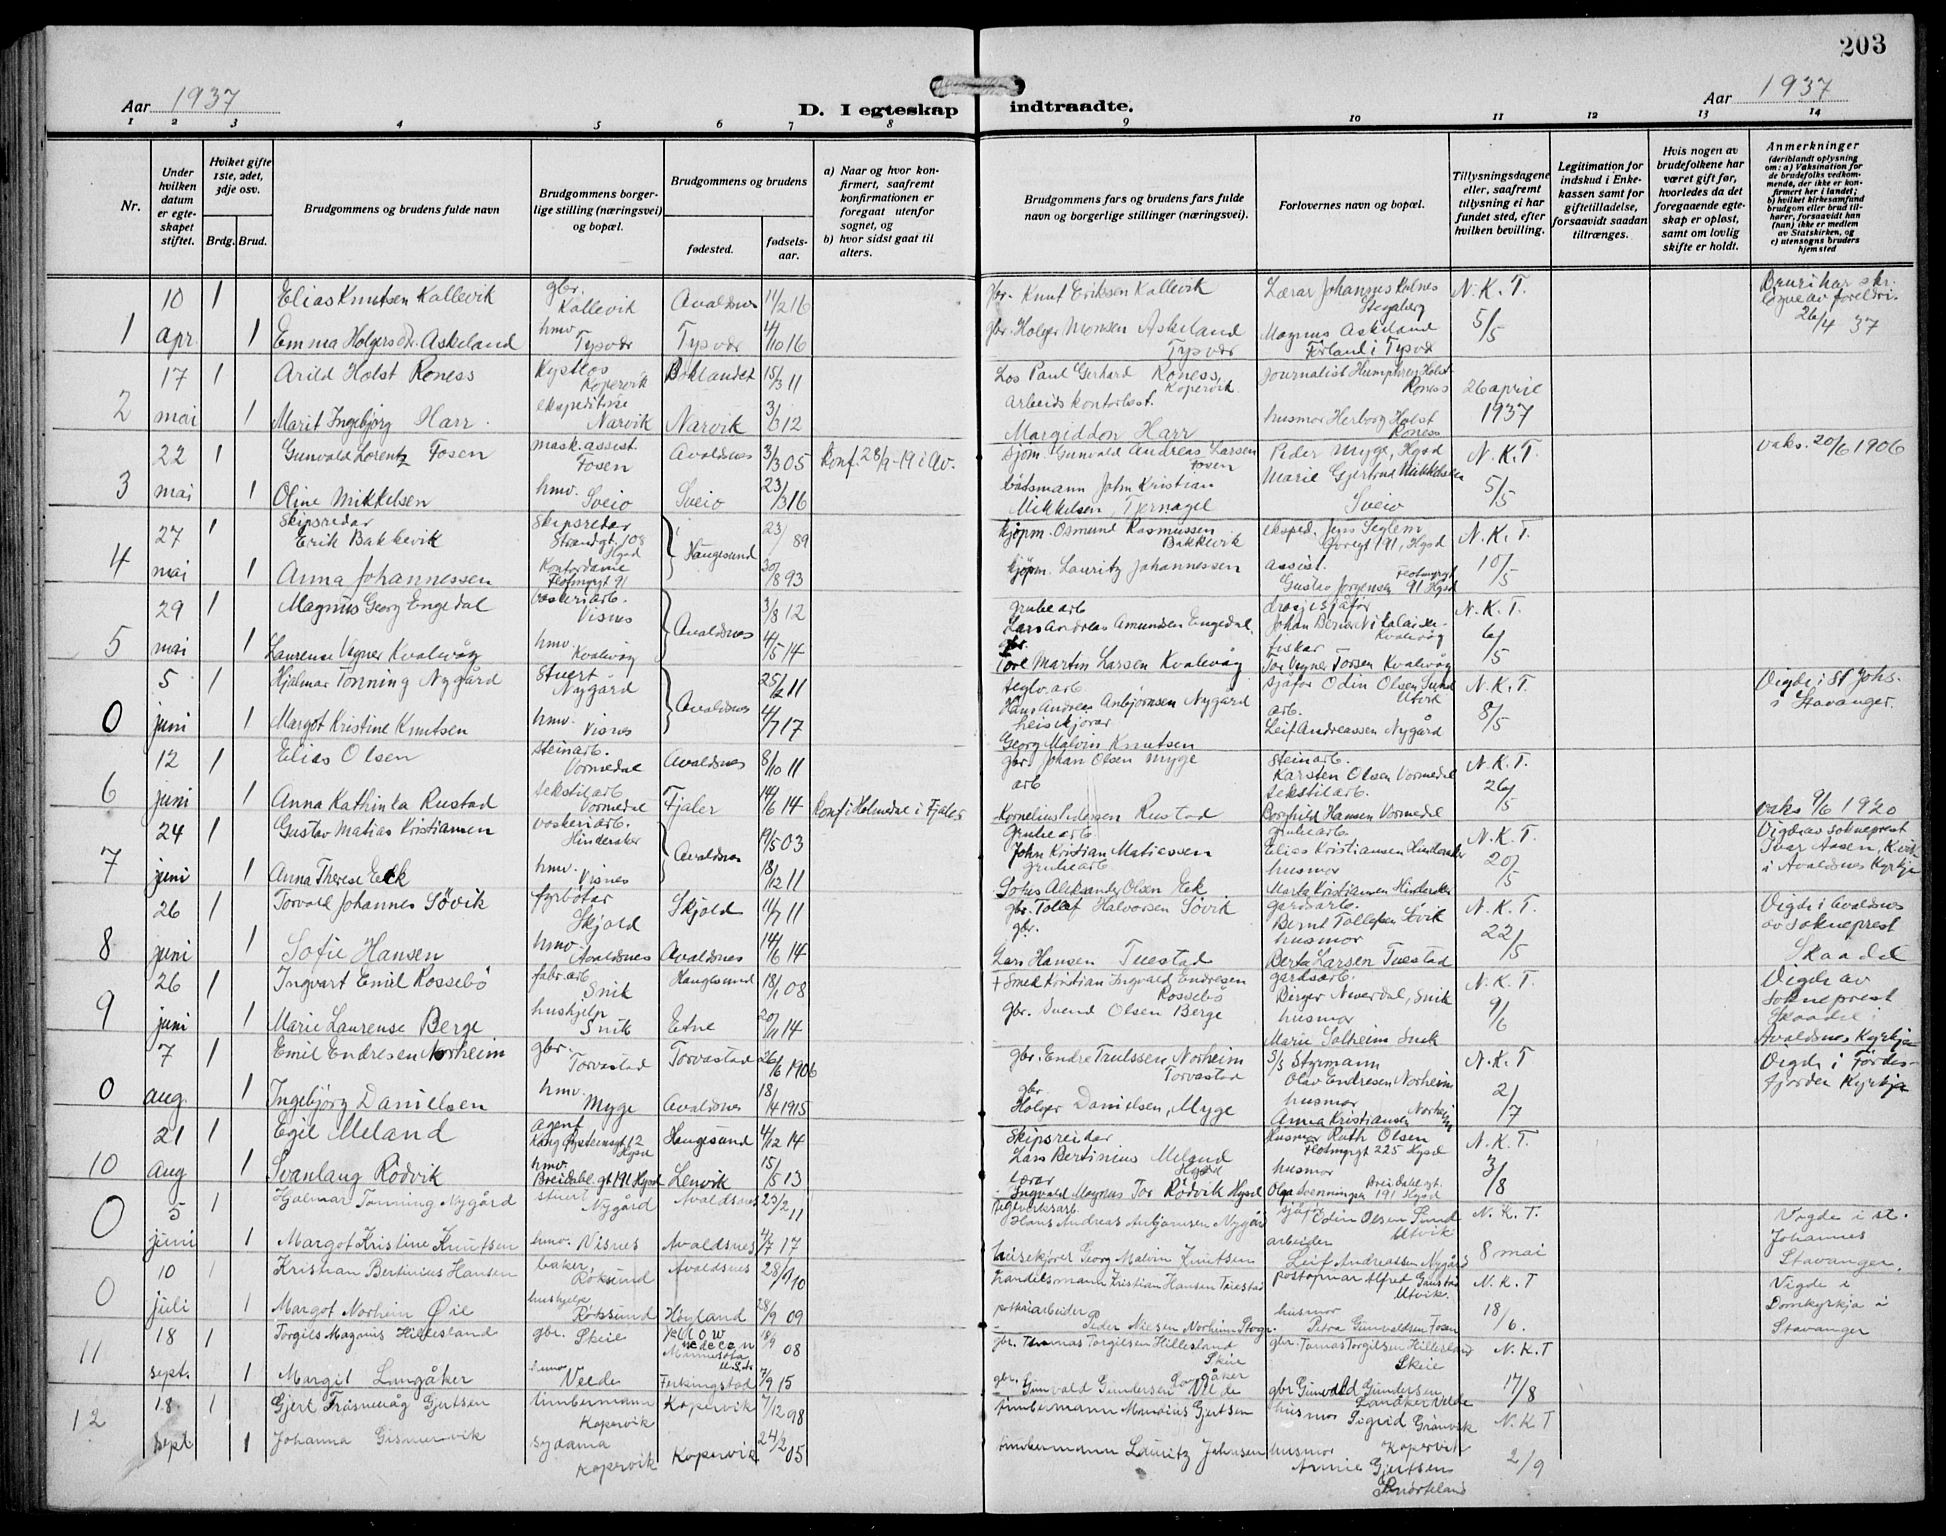 203
Aar 1937
D. I egteskap indtraadte.
Aar 1937
1 2 3 4 5 6 7 8 9 10 11 12 13 14
Nr.
Under hvilken datum er egte-skapet stiftet.
Hviket gifte 1ste, 2det, 3dje osv.
Brdg. Brud.
Brudgommens og brudens fulde navn
Brudgommens borger-lige stilling (næringsvei) og bopæl.
Brudgommens og brudens
fødested.
fødsels-aar.
a) Naar og hvor kon-firmert, saafremt konfirmationen er foregaat utenfor sognet, og
b) hvor sidst gaat til alters.
Brudgommens fars og brudens fars fulde navn og borgerlige stillinger (næringsvei).
Forlovernes navn og bopæl.
Tillysningsdagene eller, saafremt tillysning ei har fundet sted, efter hvilken bevilling.
Legitimation for indskud i Enke-kassen samt for giftetilladelse, forsaavidt saadan tiltrænges.
Hvis nogen av brudefolkene har været gift før, hvorledes da det foregaaende egte-skap er opløst, samt om lovlig skifte er holdt.
Anmerkninger
(deriblandt oplysning om: a) Vaksination for de brudefolks vedkom-mende, der ikke er kon-firmert her i landet; b) hvilket kirkesamfund brudgom eller brud til-hører, forsaavidt han (hun) ikke er medlem av Statskirken, og c) utensogns bruders hjemsted
10 1 Elias Knutsen Kallevik gbr. Kallevik Avaldsnes 11/2 16 gbr. Knut Eriksen Kallevik Lærar Johannes Kolnes N. K. T. Bruri har skr. løyve av foreldri 26/4 37
1 apr. 1 Emma Holgersdr. Askeland hmv. Tysvær Tysvær 4/10 16 gbr. Holger Monsen Askeland Tysvær Magnus Askeland Førland i Tysvær 5/5
17 1 Arild Holst Roness Kystlos Kopervik Boklandet 15/3 11 Los Paul Gerhard Roness, Kopervik Journalist Humphrey Holst Roness 26 april
2 mai 1 Marit Ingebjørg Harr. ekspeditrise Narvik Narvik 3/6 12 Arbeidskontorbest. Margiddon Harr husmor Herborg Holst Roness 1937
22 1 Gunvald Lorentz Fosen mask.assist. Fosen Avaldsnes 3/3 05 Konf. 28/9-19 i Av. sjøm. Gunvald Andreas Larsen Fosen Peder Myge, Hgsd N. K. T. vaks. 20/6 1906
3 mai 1 Oline Mikkelsen hmv. Sveio Sveio 23/3 16 båtsmann John Kristian Mikkelsen, Tjernagel Marie Gjertrud Mikkelsen Sveio 5/5
27 1 Skipsredar Erik Bakkevik Skipsredar Strandgt. 108 Hgsd Haugesund 23/ 89 kjøpm. Osmund Rasmussen Bakkevik eksped. Jens Seglem N. K. T.
4 mai 1 Anna Johannessen Kontordame Flotmyrgt 91 30/8 93 kjøpm. Lauritz Johannessen assist. Gustav Jørgensen Flotmyrgt 91 Hgsd 10/5
29 1 Magnus Georg Engedal vaskeriarb. Visnes Avaldsnes 3/8 12 grubearb Lars Andreas Amundsen Engedal drosjesjåfør Kvalevåg N. K. T.
5 mai 1 Laurense Vigner Kvalevåg hmv. Kvalevåg 4/5 14 gbr. Tore Martin Larsen Kvalevåg fiskar Tor Vigner Torsen Kvalevåg 6/5
5 1 Hjalmar Tønning Nygård Stuert Nygård Avaldsnes 25/2 11 teglv.arb Hans Andreas Anbjørnsen Nygård sjåfør Odin Olsen Sund Utvik N. K. T. Vigde i St Johs. i Stavanger.
0 juni 1 Margot Kristine Knutsen hmv. Visnes 4/7 17 heiskjørar Georg Malvin Knutsen arb. Leif Andreassen Nygård 8/5
12 1 Elias Olsen steinarb. Vormedal Avaldsnes 8/10 11 gbr Johan Olsen Myge Steinarb. Karsten Olsen Vormedal N. K. T.
6 juni 1 Anna Kathinka Rustad tekstilarb Vormedal Fjaler 14/6 14 Konf i Holmedal i Fjaler arb Kornelius Pedersen Rustad tekstilarb. Borghild Hansen Vormedal 26/5 vaks 9/6 1920
24 1 Gustav Matias Kristiansen vaskeriarb. Hinderaker Avaldsnes 19/5 03 Grubearb John Kristian Matiessen grubearb. Elias Kristiansen Hinderaker N. K. T. Vigde av sokneprest Ivar Aasen, i Avaldsnes Kyrkje
7 juni 1 Anna Therese Eek hmv. Visnes 18/12 11 grubearb Johs Aleksander Olsen Eek husmor Marta Kristiansen Hinderaker 20/5
26 1 Torvald Johannes Søvik fyrbøtar Skjold Skjold 11/7 11 gbr. Tollef Halvorsen Søvik gardsarb. Bernt Tollefsen Søvik N. K. T. Vigde i Avaldsnes av sokneprest Skaadel
8 juni 1 Sofie Hansen hmv. Avaldsnes Avaldsnes 14/6 14 gbr. Lars Hansen Tuestad husmor Berta Larsen Tuestad 22/5
26 1 Ingvart Emil Rossebø fabr.arb Snik Haugesund 18/1 08 + Smed Kristian Ingvald Endresen Rossebø gardsarb. Birger Neverdal, Snik N. K. T. Vigde av sokneprest Skaadel i Avaldsnes Kyrkje
9 juni 1 Marie Laurense Berge hushjelp Snik Etne 20/11 14 gbr. Svend Olsen Berge husmor Marie Solheim Snik 9/6
7 1 Emil Endresen Norheim gbr. Torvastad Torvastad 26/6 1906 gbr. Endre Trulssen Norheim Torvastad S/S Styrmann Olav Endresen Norheim N. K. T Vigde i Førdes-fjorden Kyrkje
0 aug. 1 Ingebjørg Danielsen hmv. Myge Avaldsnes 18/4 1915 gbr Holger Danielsen, Myge husmor Anna Kristiansen Norheim 2/7
21 1 Egil Meland agent Kong Øysteinsgt 12 Hgsd Haugesund 4/12 14 Skipsreidar Lars Bertinius Meland Hgsd Husmor Ruth Olsen Flotmyrgt 225 Hgsd N. K. T.
10 aug 1 Svanlaug Rødvik hmv. Breidabl.gt 191 Hgsd Lenvik 15/5 13 lærar Ingvald Magnus Tor Rødvik Hgsd husmor Olga Svenningsen Breidabl.gt. 191 Hgsd 3/8
0 5 1 Hjalmar Tønning Nygård stuert Nygård Avaldsnes 23/2 11 Teglverksarb. Hans Andreas Anbjørnsen Nygård sjåfør Odin Olsen Sund Utvik N. K. T. Vigde i st. Johannes Stavanger.
juni 1 Margot Kristine Knutsen hmv. Visnes Avaldsnes 4/7 17 heisekjører Georg Malvin Knutsen arbeider Leif Andreassen Nygård 8 mai
0 10 1 Kristian Bertinius Hansen baker, Røksund Avaldsnes 28/1 10 handelsmann Kristian Hansen Tuestad postopnar Alfred Gaustad Utvik. N. K. T Vigde i Domkyrkja i Stavanger
juli 1 Margot Norheim Øie hushjelp Røksund Høyland 28/9 09 Peder Nielsen Norheim husmor Petra Gunvaldsen Fosen 18/6.
11 18 1 Torgils Magnus Hillesland gbr. Skeie Yellow Medecen Minnesota U.S.A. 18/9 08 gbr. Thomas Torgilsen Hillesland Skeie gbr. Tomas Torgilsen Hillesland Skeie N. K. T
sept. 1 Margit Langåker hmv Velde Ferkingstad 7/9 15 gbr. Gunvald Gundersen Langåker Velde gbr Gunvald Gundersen Langåker Velde 17/8
12 18 1 Gjert Frásnevåg Gjertsen timbermann Kopervik Kopervik 7/12 98 timbermann Mandius Gjertsen husmor Sigrid Grønvik Kopervik N. K T
sept 1 Johanna Gismervik sydama Kopervik Kopervik 24/2 05 timbermann Lauritz Johnsen husmor Annie Gjertsen Snørteland 2/9